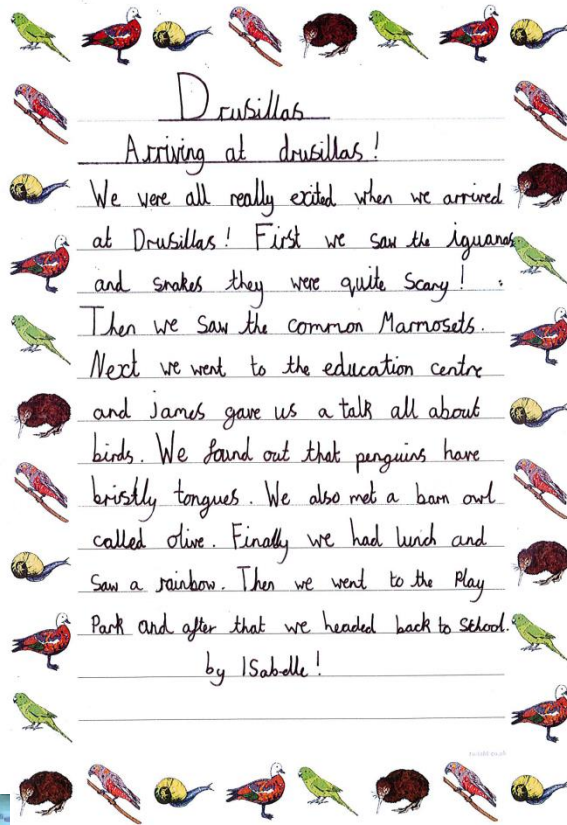 Drusillas
Arriving at drusillas!
We were all really exited when we arrived
at Drusillas! First we saw the iguanas
and snakes they were quite Scary!
Then we Saw the common Marmosets.
Next we went to the education centre
and james gave us a talk all about
birds. We found out that penguins have
bristly tongues. We also met a barn owl
called olive. Finally we had lunch and
Saw a rainbow. Then we went to the Play
Park and after that we headed back to School.
by ISabelle!